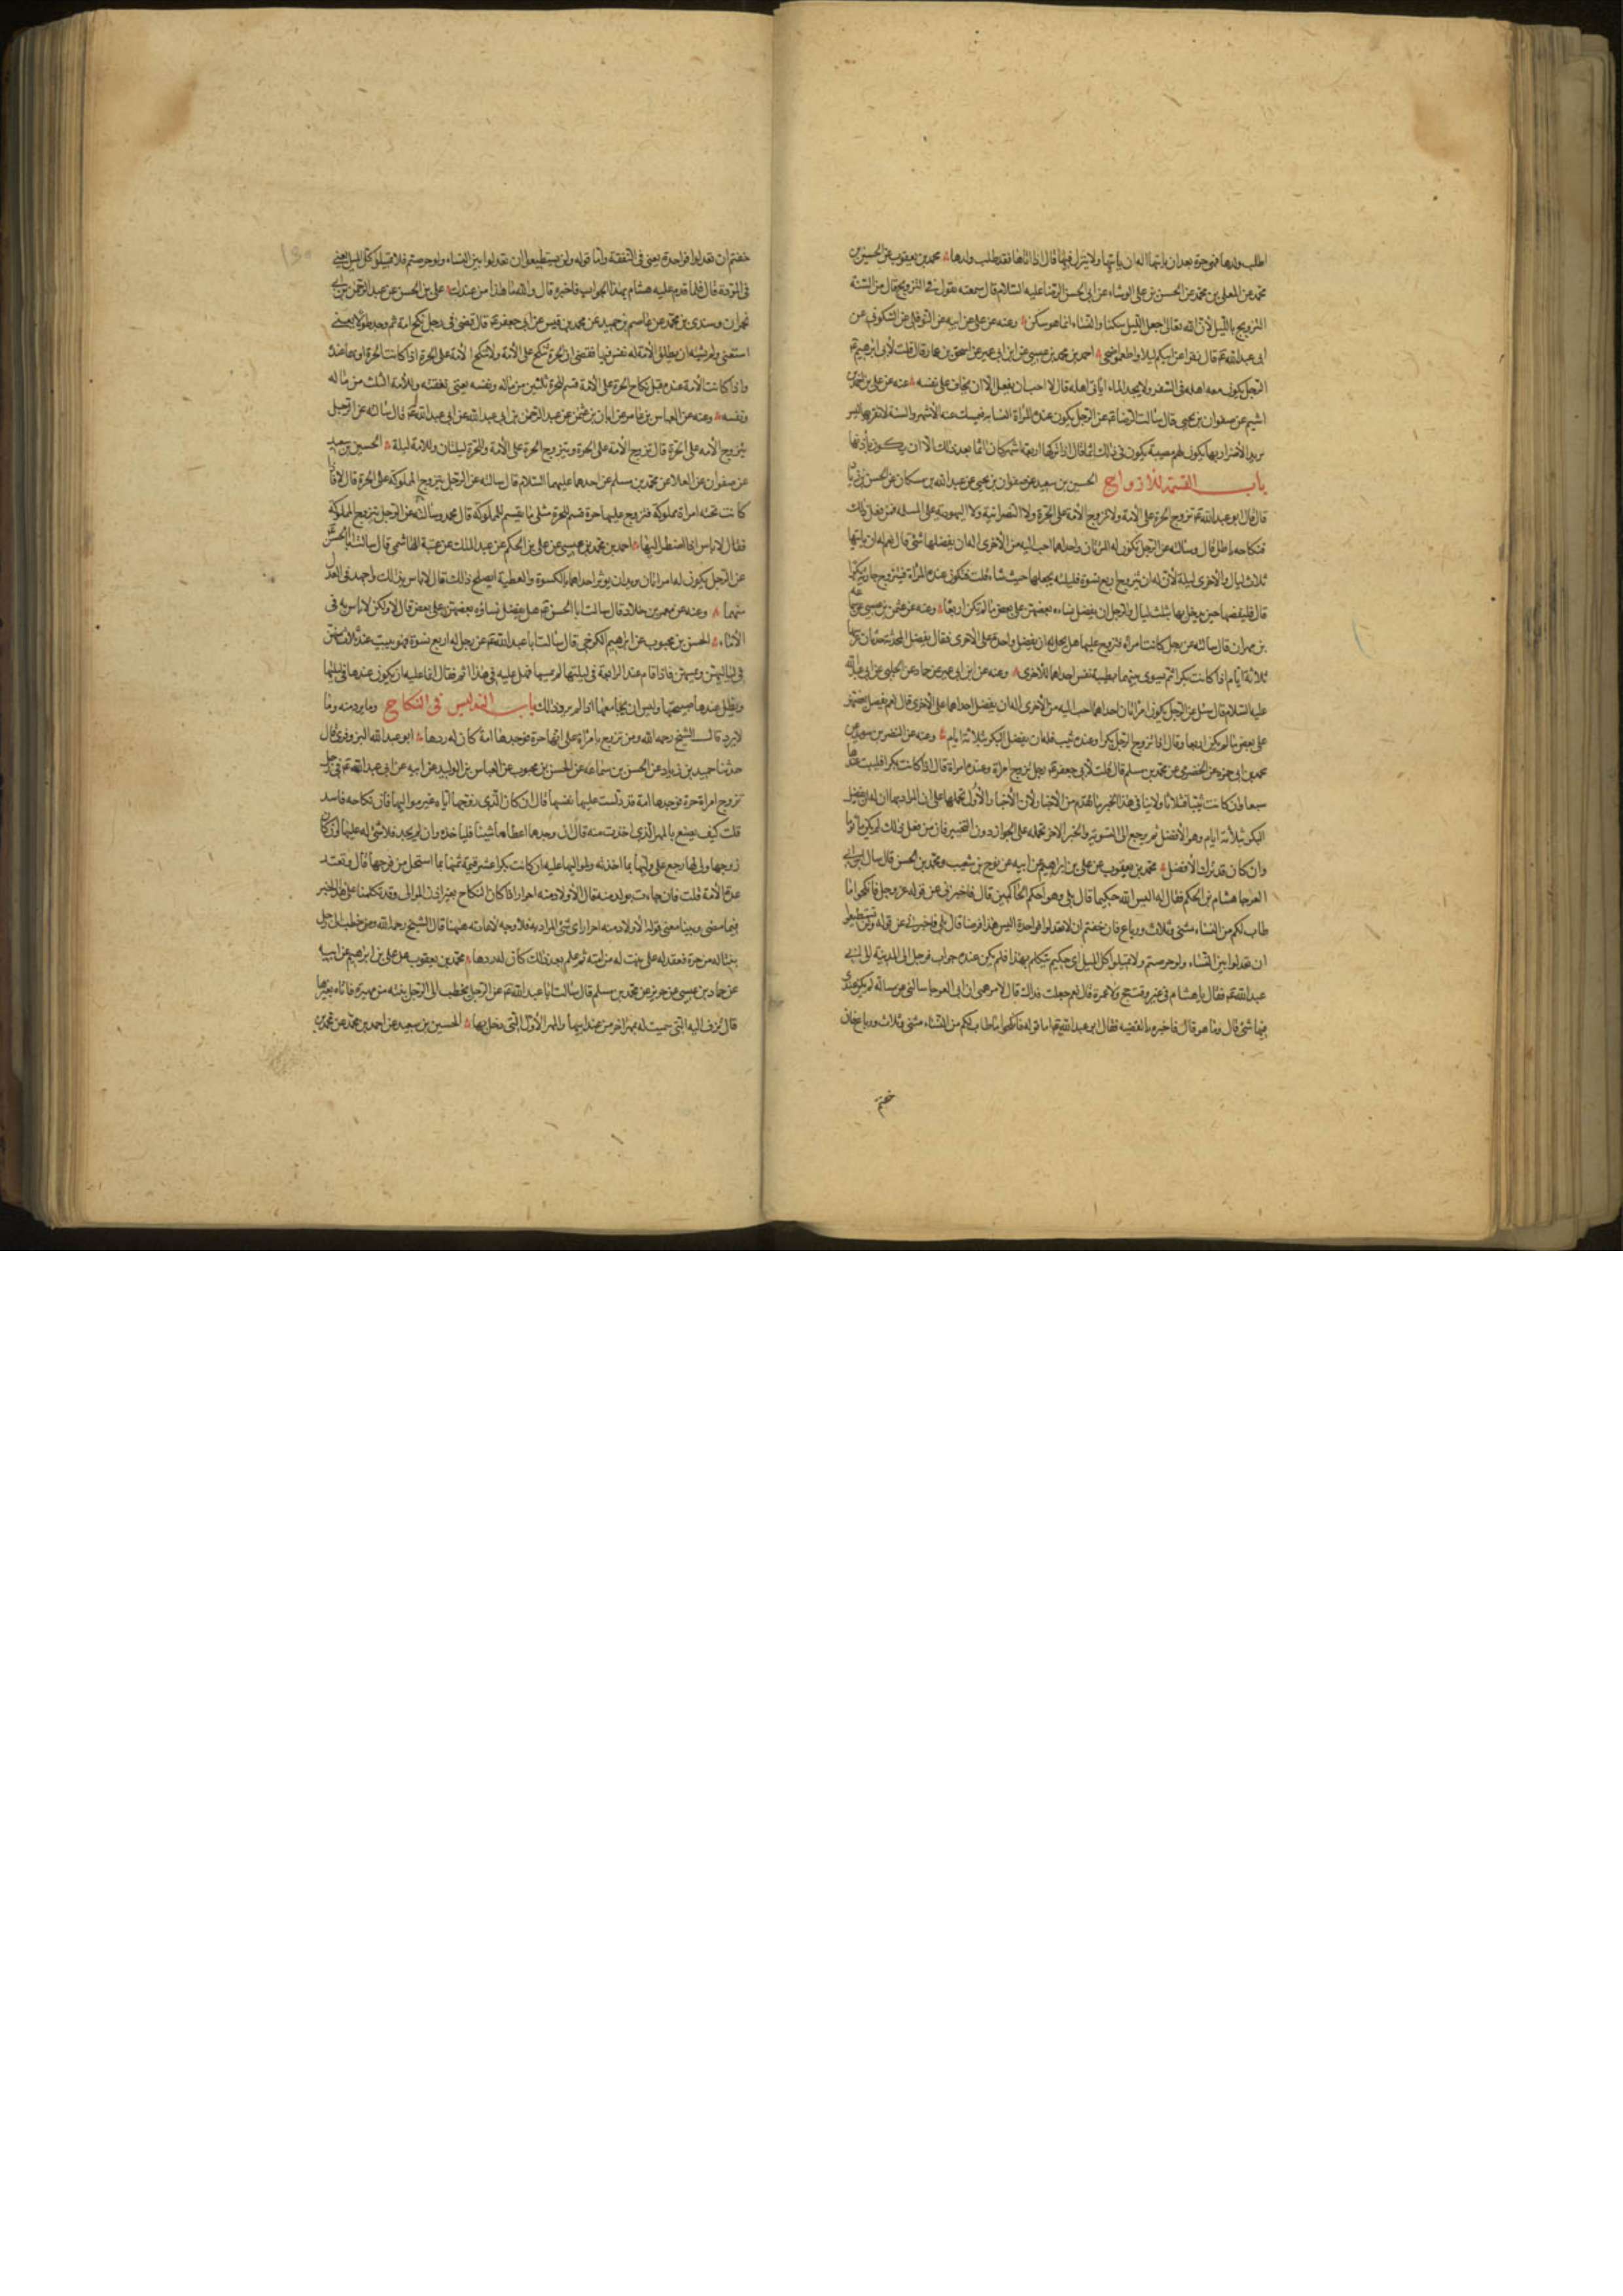 اطلب ولدها فهو حرة بعد ان ياتيها اله ان ياتيها ولا ينزل فيها قال اذا اتاها فقد طلب ولدها محمد بن يعقوب عن الحسين بن
محمد عن المعلى بن محمد عن الحسن بن على الوشاء عن ابى الحسن الرضا عليه السلام قال سمعته يقول فى التزويج قال من السنة
التزويج بالليل لان الله تعالى جعل الليل سكنا والنساء انما هو سكن وعنه عن على عن ابيه عن النوفلى عن السكونى عن
ابى عبد الله ع قال زفوا عرايسكم ليلا واطعموا ضحى احمد بن محمد بن عيسى عن ابن ابى عمير عن اسحق بن عمار قال قلت لابى ابرهيم ع
الرجل يكون معه اهله فى السفر ولا يجد الماء اياتى اهله قال لا احب ان يفعل الا ان يخاف على نفسه عنه عن على بن احمد بن
اشيم عن صفوان بن يحيى قال سالت الرضا ع عن الرجل يكون عنده المراة الشابة فيمسك عنه الاشهر والسنة لا يقربها ليس
يريد الاضرار بها يكون لهم مصيبة يكون فى ذلك اثما قال اذا تركها اربعة اشهر كان اثما بعد ذلك الا ان يكون باذنها
باب القسمة للازواج الحسين بن سعيد عن صفوان بن يحيى عن عبد الله بن مسكان عن الحسن بن زياد
قال قال ابو عبد الله ع تزوج الحرة على الامة ولا تزوج الامة على الحرة ولا النصرانية ولا اليهودية على المسلمة فمن فعل ذلك
فنكاحه باطل قال وسالته عن الرجل يكون له المراتان واحداهما احب اليه من الاخرى اله ان يفضلها بشئ قال نعم له ان ياتيها
ثلاث ليال والاخرى ليلة لان له ان يتزوج اربع نسوة فليلتيه يجعلهما حيث شاء قلت فتكون عنده المراة فيتزوج جارية بكرا
قال فليفضلها حين يدخل بها بثلث ليال وللرجل ان يفضل نساءه بعضهن على بعض ما لم تكن اربعا وعنه عن عثمن بن عيسى عن سماعة
بن مهران قال سالته عن رجل كانت له امراة فتزوج عليها هل يحل له ان يفضل واحدة على الاخرى فقال يفضل المحدثة حدثان عرسها
ثلاثة ايام اذا كانت بكرا ثم يسوى بينهما بطيبة نفس احداهما للاخرى وعنه عن ابن ابى عمير عن حماد عن الحلبى عن ابى عبد الله
عليه السلام قال سئل عن الرجل يكون امراتان احداهما احب اليه من الاخرى اله ان يفضل احداهما على الاخرى قال نعم يفضل بعضهن
على بعض ما لم يكن اربعا وقال اذا تزوج الرجل بكرا وعنده ثيب فله ان يفضل البكر بثلاثة ايام وعنه عن النضر بن سويد عن
محمد بن ابى حمزة عن الحضرمى عن محمد بن مسلم قال قلت لابى جعفر ع رجل تزوج امراة وعنده امراة قال اذا كانت بكرا فليبت عندها
سبعا وان كانت ثيبا فثلاثا ولا ينافى هذا الخبر ما تقدم من الاخبار لان الاخبار الاول نحملها على ان المراد بها ان له ان يفضل
البكر بثلاثة ايام وهو الافضل ثم يرجع الى التسوية والخبر الاخر نحمله على الجواز دون التخيير فان من فعل ذلك لم يكن ماثوما
وان كان قد ترك الافضل محمد بن يعقوب عن على بن ابراهيم عن ابيه عن نوح بن شعيب ومحمد بن الحسن قال سال ابن ابى
العوجا هشام بن الحكم فقال له اليس الله حكيما قال بلى وهو احكم الحاكمين قال فاخبرنى عن قوله عز وجل فانكحوا ما
طاب لكم من النساء مثنى وثلاث ورباع فان خفتم ان لا تعدلوا فواحدة اليس هذا فرضا قال بلى فاخبرنى عن قوله ولن تستطيعوا
ان تعدلوا بين النساء ولو حرصتم ولا تميلوا كل الميل اى حكيم يتكلم بهذا فلم يكن عنده جواب فرحل الى المدينة الى ابى
عبد الله ع فقال يا هشام فى غير وقت حج ولا عمرة قال نعم جعلت فداك قال لامر همنى ان ابن ابى العوجا سالنى عن مسالة لم يكن عندى
فيها شئ قال وما هو قال فاخبره بالقضية فقال ابو عبد الله ع اما قوله فانكحوا ما طاب لكم من النساء مثنى وثلاث ورباع فان
خفتم
خفتم ان تعدلوا فواحدة يعنى فى النفقة واما قوله ولن تستطيعوا ان تعدلوا بين النساء ولو حرصتم فلا تميلوا كل الميل يعنى
فى المودة قال فلما قدم عليه هشام بهذا الجواب فاخبره قال والله ما هذا من عندك على بن الحسن عن عبد الرحمن بن ابى
نجران وسندى بن محمد عن عاصم بن حميد عن محمد بن قيس عن ابى جعفر ع قال قضى فى رجل نكح امة ثم وجد طولا يعنى
استغنى ولم يشته ان يطلق الامة له نفس فيها فقضى ان الحرة تنكح على الامة ولا تنكح الامة على الحرة اذا كانت الحرة اولهما عنده
واذا كانت الامة عنده قبل نكاح الحرة على الامة قسم للحرة الثلثين من ماله ونفسه يعنى نفقته وللامة الثلث من ماله
ونفسه وعنه عن العباس بن عامر عن ابان بن عثمن عن عبد الرحمن بن ابى عبد الله عن ابى عبد الله ع قال سالته عن الرجل
يتزوج الامه على الحرة قال تزوج الامة على الحرة ويتزوج الحرة على الامة وللحرة ليلتان وللامة ليلة الحسين بن سعيد
عن صفوان عن العلا عن محمد بن مسلم عن احدهما عليهما السلام قال سالته عن الرجل يتزوج المملوكة على الحرة قال لا فاذا
كانت تحته امراة مملوكة فتزوج عليها حرة قسم للحرة مثلى ما يقسم للمملوكة قال محمد وسالته عن الرجل يتزوج المملوكة
فقال لا باس اذا اضطر اليها احمد بن محمد بن عيسى عن على بن الحكم عن عبد الملك عن عتبة الهاشمى قال سالت ابا الحسن
عن الرجل يكون له امراتان ويريد ان يوثر احداهما بالكسوة والعطية ايصلح ذلك قال لا باس بذلك واجهد فى العدل
بينهما وعنه عن معمر بن خلاد قال سالت ابا الحسن ع هل يفضل نساؤه بعضهن على بعض قال لا ولكن لا باس به فى
الاماء الحسن بن محبوب عن ابراهيم الكرخى قال سالت ابا عبد الله ع عن رجل له اربع نسوة وهو يبيت عند ثلاث منهن
فى لياليهن ويمسهن فاذا قام عند الرابعة فى ليلتها لم يمسها فهل عليه فى هذا اثم فقال انما عليه ان يكون عندها فى ليلتها
ويظل عندها صبيحتها وليس ان يجامعها اذا لم يرد ذلك باب التدليس فى النكاح وما يرد منه وما
لا يرد قال الشيخ رحمه الله ومن تزوج بامراة على انها حرة فوجدها امة كان له ردها ابو عبد الله البزوفرى قال
حدثنا حميد بن زياد عن الحسن بن سماعة عن الحسن بن محبوب عن العباس بن الوليد عن ابيه عن ابى عبد الله ع فى رجل
تزوج امراة حرة فوجدها امة قد دلست عليها نفسها قال ان كان الذى زوجها اياه غير مواليها فان نكاحه فاسد
قلت كيف يصنع بالمهر الذى اخذت منه قال ان وجد مما اعطاها شيئا فلياخذه وان لم يجد فلا شئ له عليها وان كان
زوجها ولى لها رجع على وليها بما اخذته ولمواليها عليه ان كانت بكرا عشر قيمة ثمنها بما استحل من فرجها قال وتعتد
عدة الامة قلت فان جاءت بولد منه قال الاولاد منه احرار اذا كان النكاح بغير اذن الموالى وقد تكلمنا على هذا الخبر
فيما مضى وبينا معنى قوله الاولاد منه احرار اى شئ المراد به فلا وجه لاعادته ههنا قال الشيخ رحمه الله ومن خطب الى رجل
بنتا له من حرة فعقد له على بنت له من امته ثم علم بعد ذلك كان له ردها محمد بن يعقوب عن على بن ابراهيم عن ابيه
عن حماد بن عيسى عن حريز عن محمد بن مسلم قال سالت ابا عبد الله ع عن الرجل يخطب الى الرجل بنته من مهيرة فاتاه بغيرها
قال تزف اليه التى سميت له بمهر اخر من عند ابيها والمهر الاول للتى دخل بها الحسين بن سعيد عن احمد بن محمد عن محمد بن